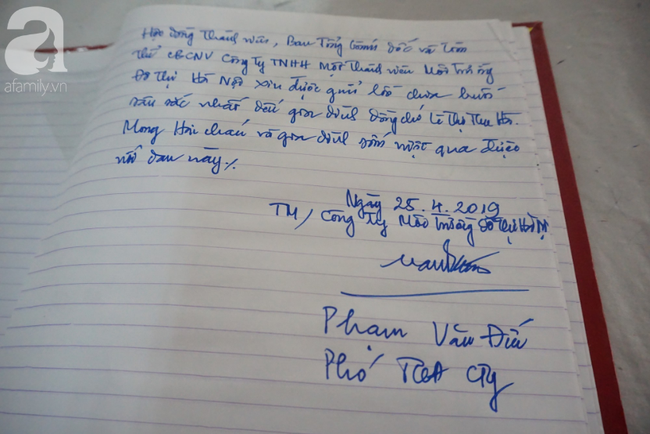 a
afamily.vn
Hội đồng thành viên, Ban Tổng Giám đốc và toàn
thể CBCNV Công ty TNHH Một thành viên Môi trường
Đô thị Hà Nội xin được gửi lời chia buồn
sâu sắc nhất đến gia đình đồng chí Lê Thị Thu Hà.
Mong Hai cháu và gia đình sớm vượt qua được
nỗi đau này./.
Ngày 25.4.2019
TM/ Công ty Môi trường Đô thị Hà Nội
Phạm Văn Đức
Phó TGĐ Cty